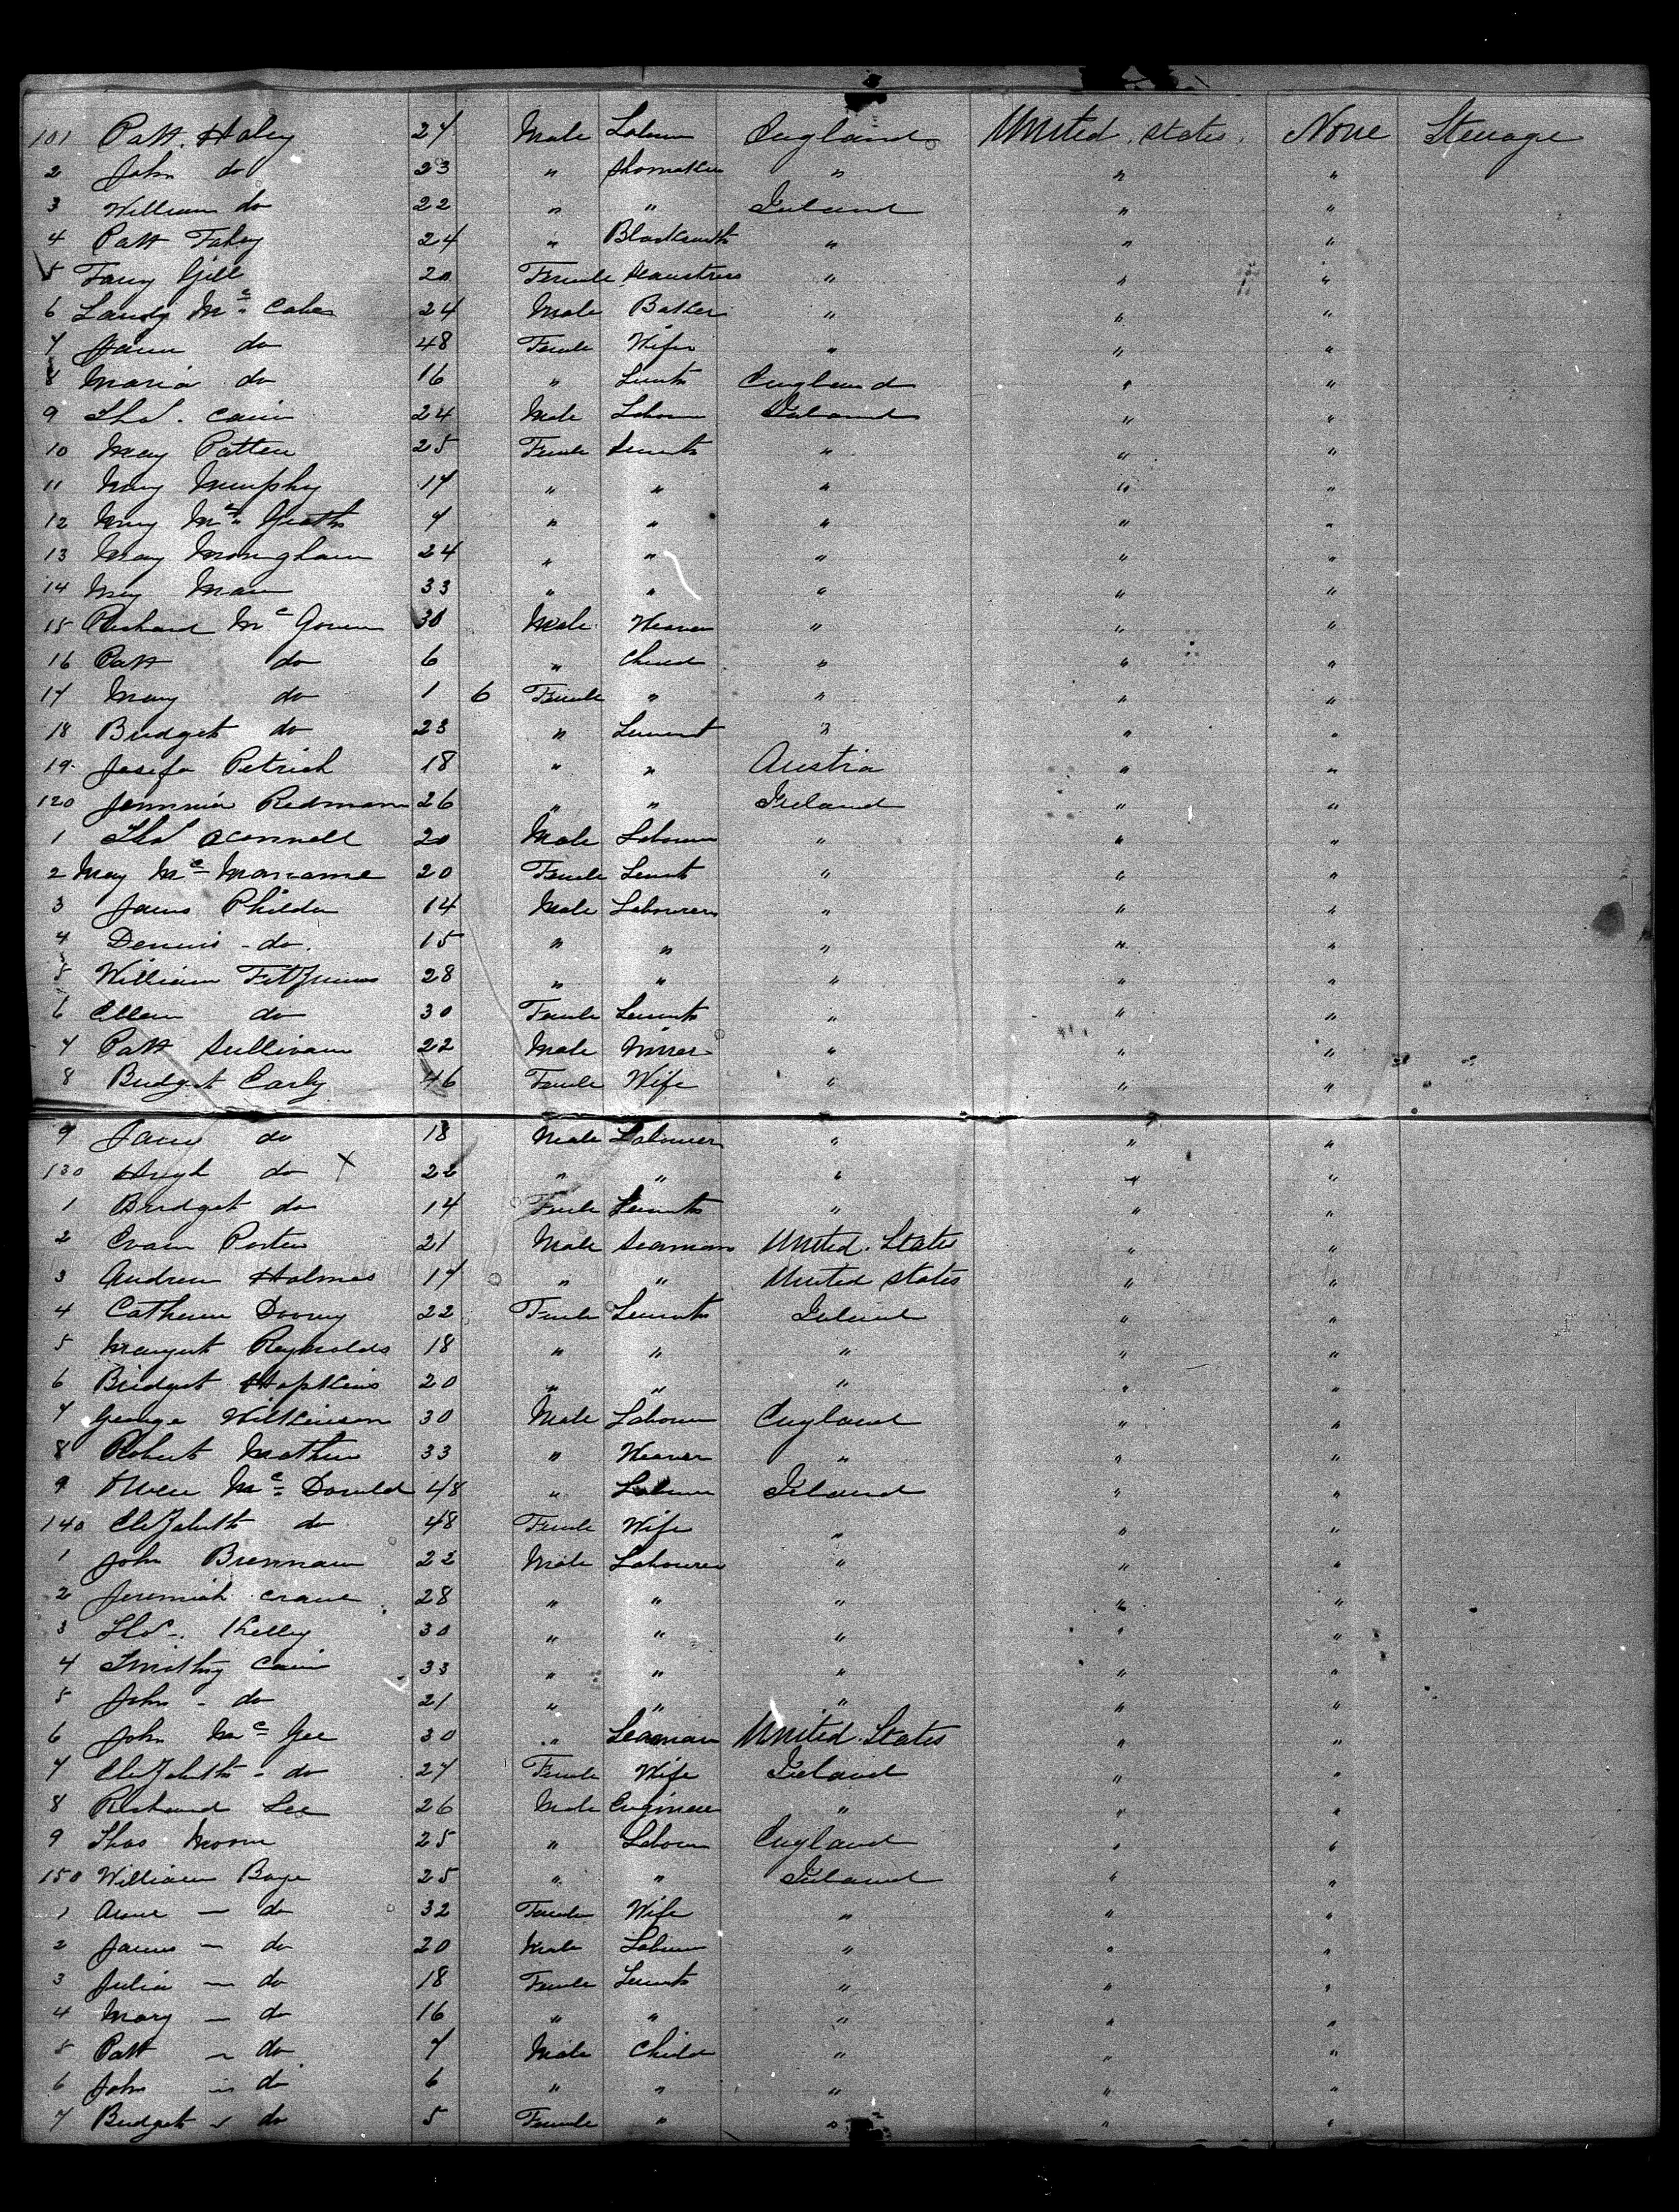 101 Patt. Haley 27 Male Labourer England United States. None Steerage
2 John do 23 " Shomaker " " "
3 William do 22 " " Ireland " "
4 Patt Fahey 24 " Blacksmith " " "
5 Fany Gill 20 Female Seamstress " " "
6 Mc Cabe 24 Male Baker " " "
7 do 48 Female Wife " " "
8 Maria do 16 " Servnt England " "
9 Thos. Cain 24 Male Labour Ireland " "
10 May Patten 25 Female Servnt " " "
11 Mary Murphy 17 " " " " "
12 Mary Mc Grath 7 " " " " "
13 Mary Moninghan 24 " " " " "
14 Mary 33 " " " " "
15 Richard Mc Gowen 30 Male Weaver " " "
16 Patt do 6 " Child " " "
17 Mary do 1 6 Female " " " "
18 Bridget do 23 " Servent " " "
19 Josefa Petrich 18 " " Austria " "
120 Redmann 26 " " Ireland " "
1 Thos OConnell 20 Male Labourer " " "
2 May Mc 20 Female Servnt " " "
3 James 17 Male Labourer " " "
4 Dennis - do. 15 " " " " "
5 William FitzJames 28 " " " " "
6 Ellen do 30 Female Servnt " " "
7 Patt Sullivan 22 Male Miner " " "
8 Bridget Early 46 Female Wife " " "
9 James do 18 Male Labourer " " "
130 Hugh do X 22 " " " " "
1 Bridget do 14 Female Servnt " " "
2 Porter 21 Male Seaman United. States " "
3 Andrew Holmes 17 " " United States " "
4 Catherine 22 Female Servnt Ireland " "
5 Margret Reynolds 18 " " " " "
6 Bridget Hopkins 20 " " " " "
7 George Wilkinson 30 Male Labour England " "
8 Robert Mathew 33 " Weaver " " "
9 Owen Mc Donald 48 " Labour Ireland " "
140 Elizabeth do 48 Female Wife " " "
1 John Brennan 22 Male Labourer " " "
2 Jeremiah Crane 28 " " " " "
3 Thos. Kelley 30 " " " " "
4 Timothy Cain 33 " " " " "
5 John - do 21 " " " " "
6 John Mc Gee 30 " Seaman United. States " "
7 Elizabeth - do 27 Female Wife Ireland " "
8 Richard Lee 26 Male Engineer " " "
9 Thos Moore 25 " Labour England " "
150 William Boye 25 " " Ireland " "
1 Anne - do 32 Female Wife " " "
2 James - do 20 Male Labour " " "
3 Julia - do 18 Female Servnt " " "
4 Mary - do 16 " " " " "
5 Patt - do 7 Male Child " " "
6 John - do 6 " " " " "
7 Bridget - do 5 Female " " " "